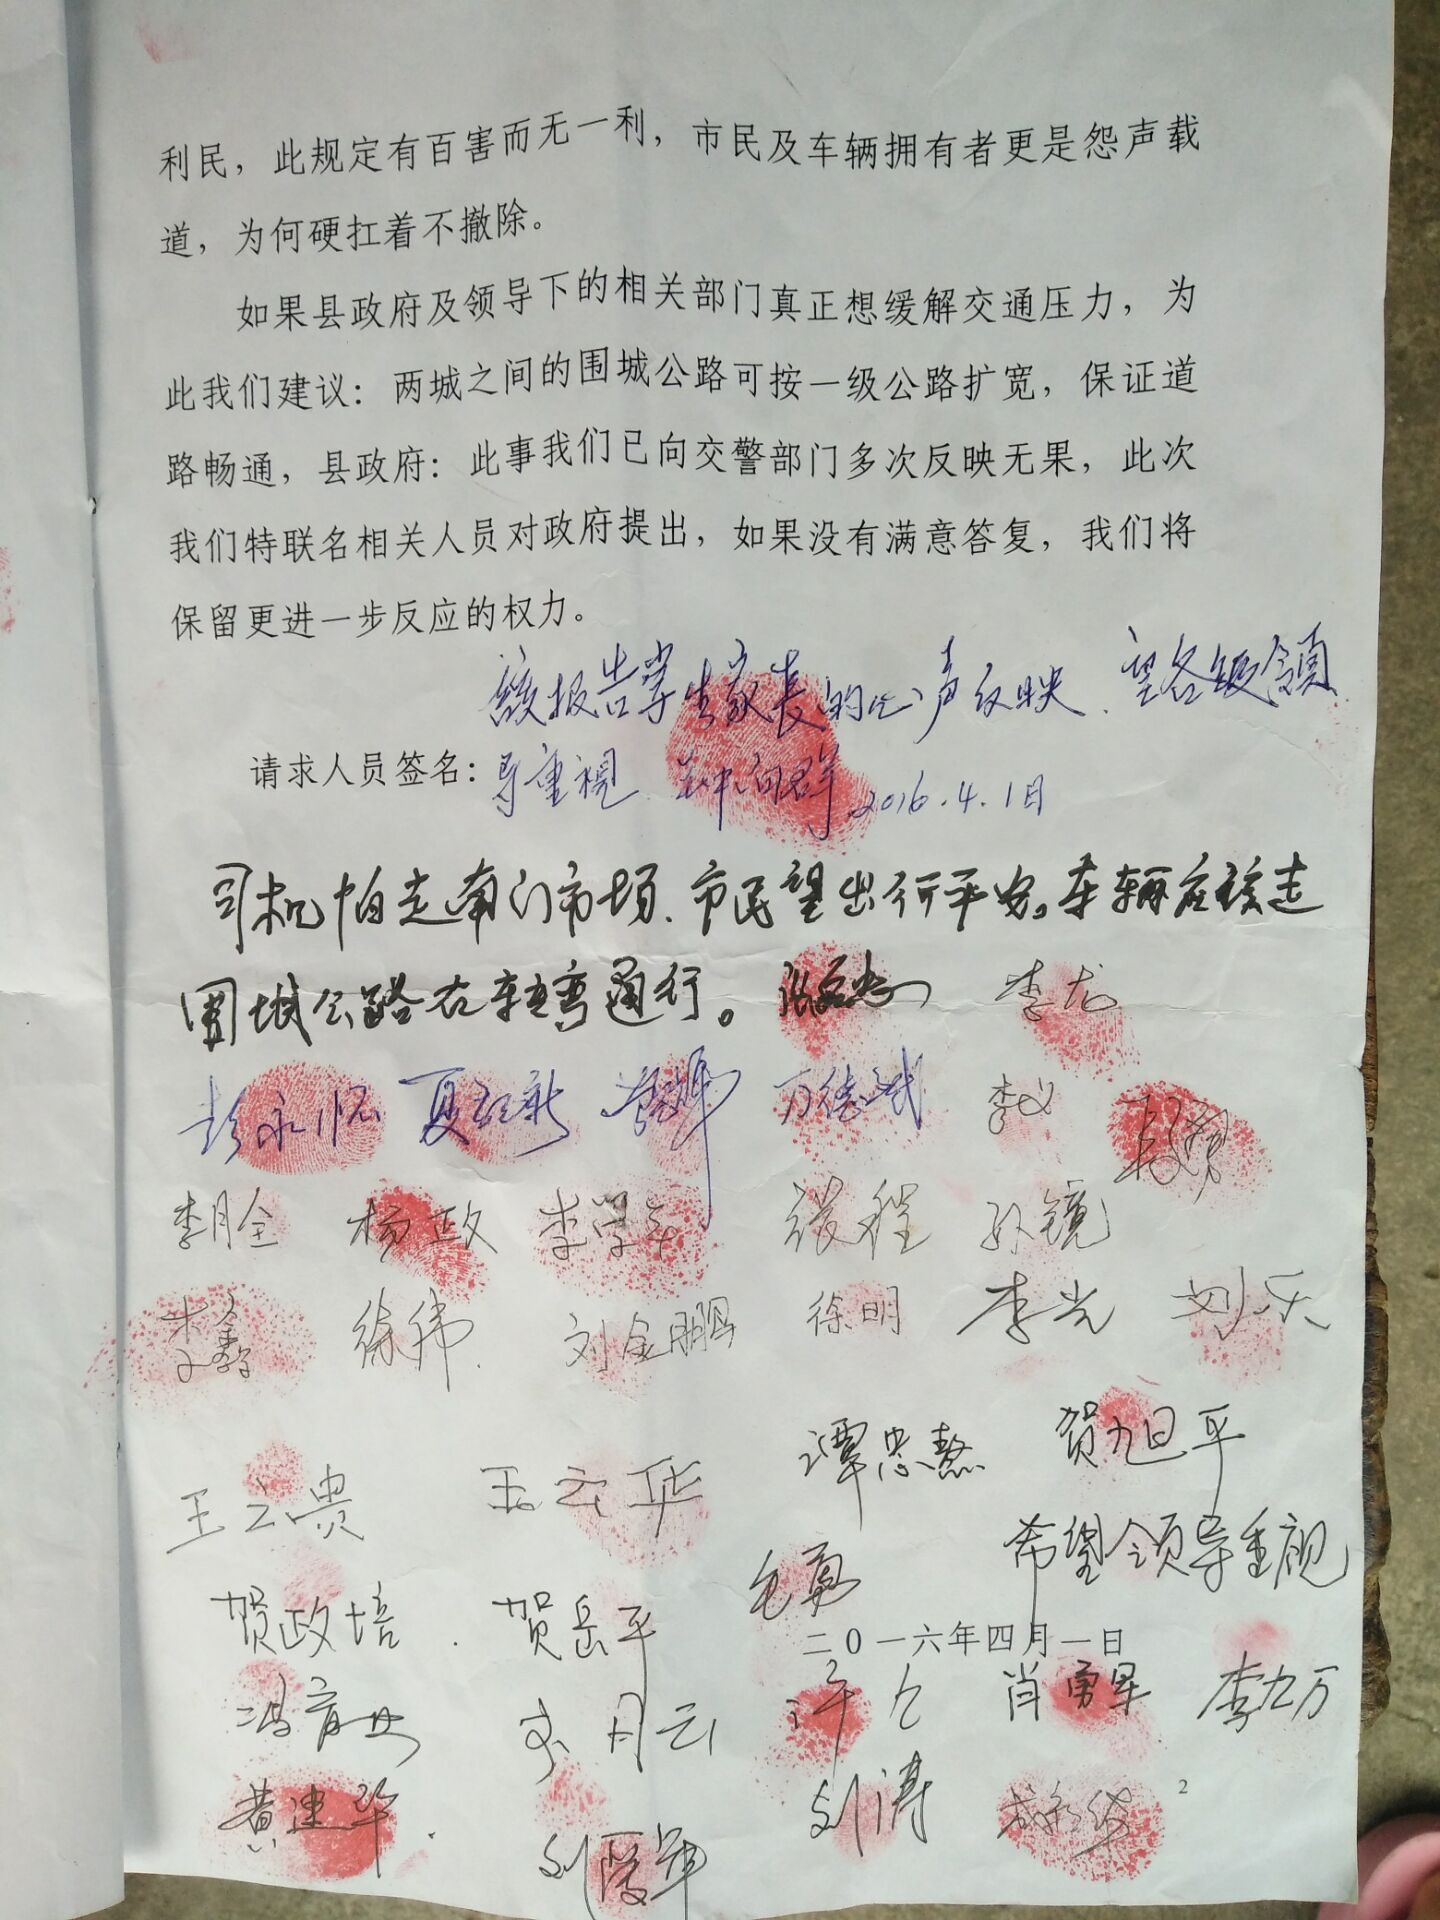 利民，此规定有百害而无一利，市民及车辆拥有者更是怨声载
道，为何硬扛着不撤除。
如果县政府及领导下的相关部门真正想缓解交通压力，为
此我们建议：两城之间的围城公路可按一级公路扩宽，保证道
路畅通，县政府：此事我们已向交警部门多次反映无果，此次
我们特联名相关人员对政府提出，如果没有满意答复，我们将
保留更进一步反应的权力。
该报告学生家长的心声反映、望各级领
请求人员签名：导重视 2016.4.1日
司机怕走南门市场、市民望出行平安。车辆应该走
围城公路右转弯通行。 李龙
彭永怀 李义
李月全 杨政 李学军 张程 孙镜
李鑫 徐伟 刘金鹏 徐明 李光 刘乐
谭忠鳌 贺旭平
王立贵 王云华
希望领导重视
贺政培 贺岳平 毛勇
二〇一六年四月一日
肖勇军 李九万
黄建华 刘涛
2